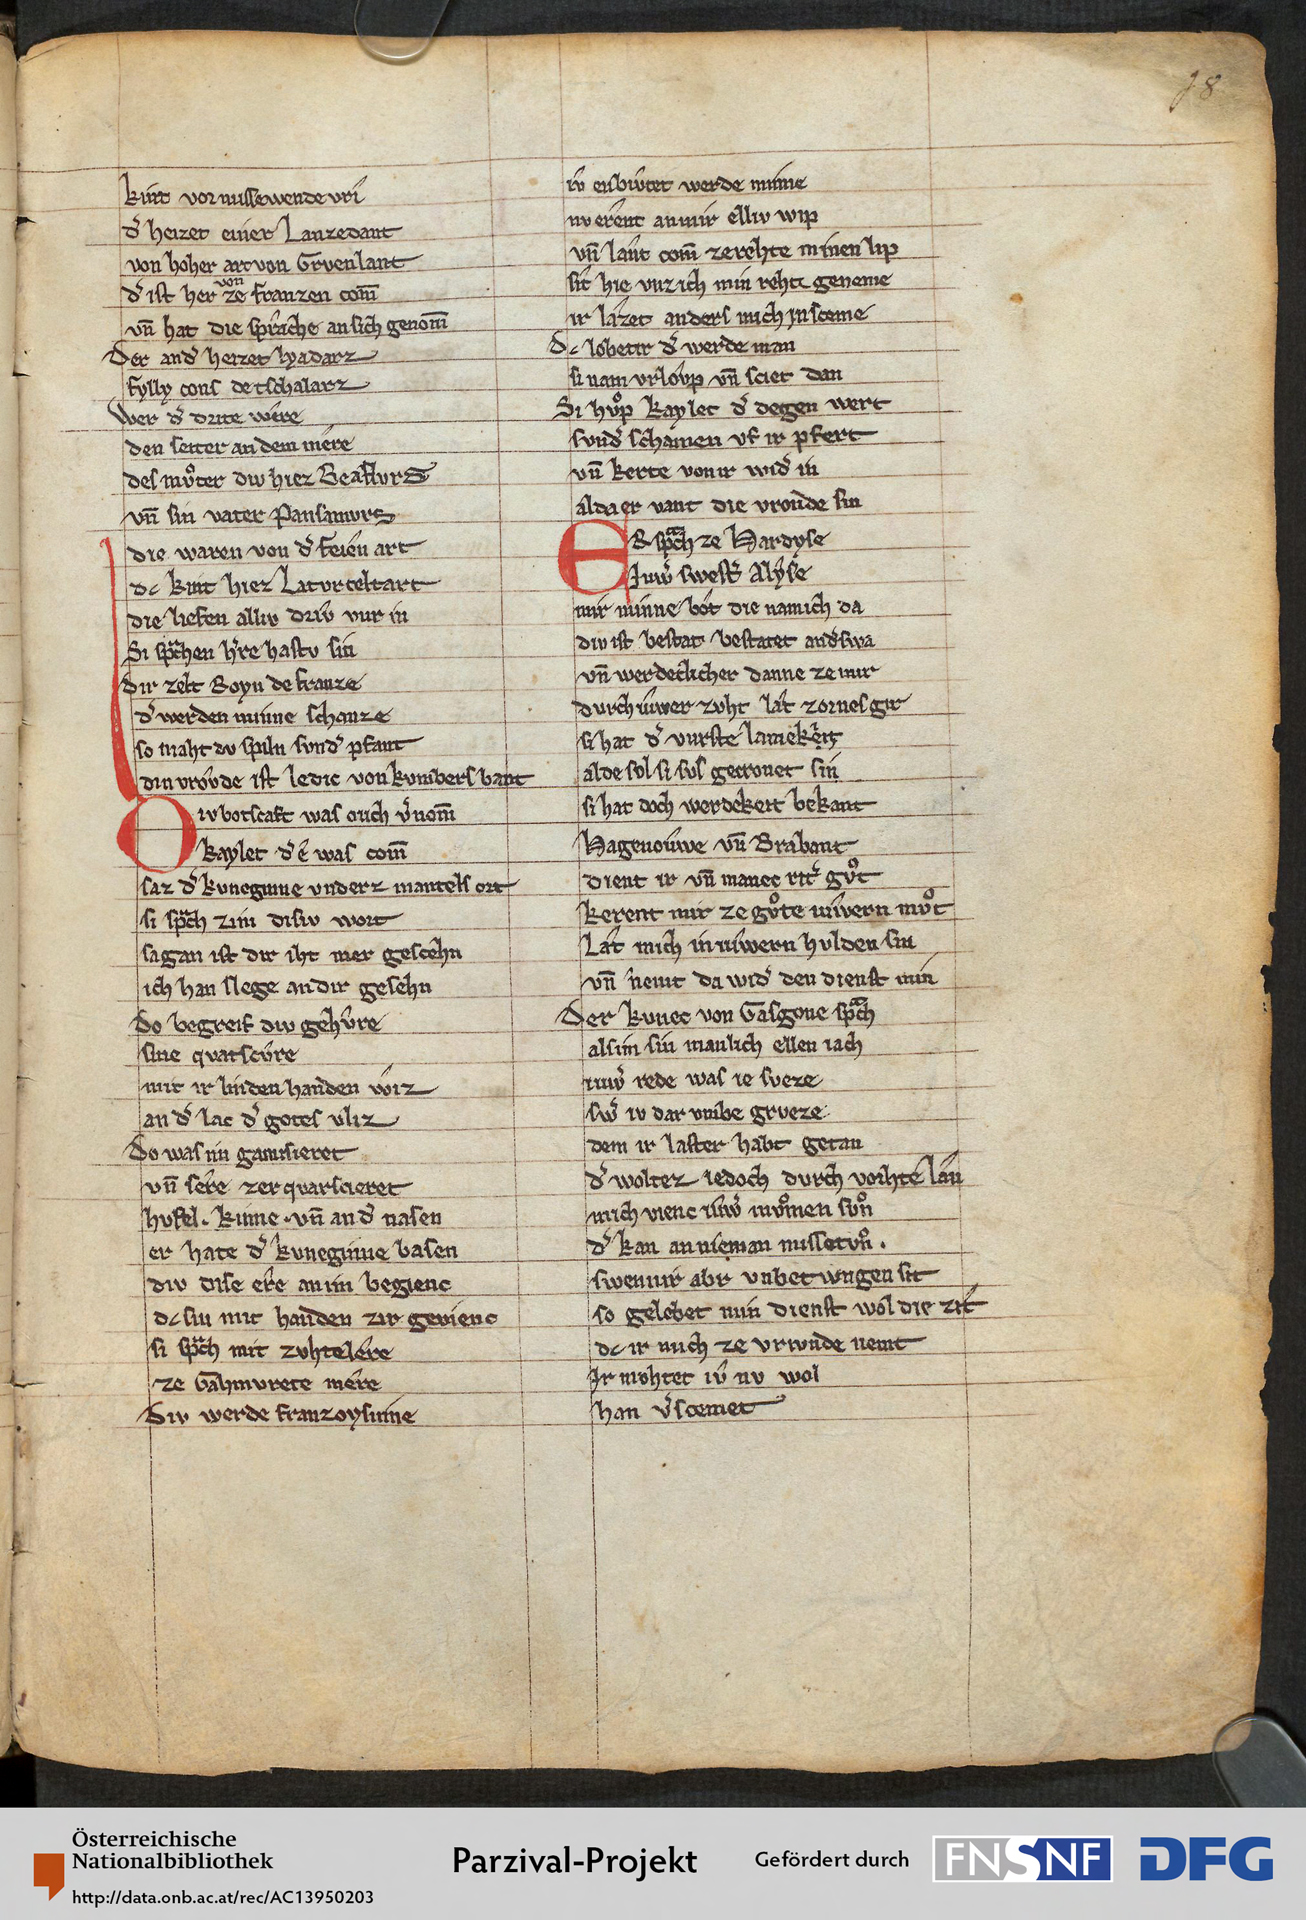 18
kint vor missewende vri
d͛ heizet einer Lanzedant
von hoher art von Grvenlant
von
d͛ ist her ze franzen com̄
vn̄ hat die sprâche an sich genom̄
Der and͛ heizet lyadarz
fylly cons de tschalarz
Wer d͛ drite wêre
den seiter an dem mêre
des mvͦter div hiez Beaflvrs
vn̄ sin vater Pansamvrs
die waren von d͛ feien art
dc kint hiez Latvrteltart
die liefen alliv driv vur in
Si sprachen h͛re hastv sin
dir zelt Royn de franze
d͛ werden minne schanze
so maht dv spiln svnd͛ pfant
din vrôvde ist ledic von kvmbers bant
Div botscaft was ouch v͛nom̄
kaylet d͛ ê was com̄
saz d͛ kvneginne vnderz mantels ort
si sprach zim disiv wort
sagan ist dir iht mer gescêhn
ich han slege an dir gesêhn
Do begreif div gehv̂re
sine qvatscv̂re
mit ir linden handen wiz
an d͛ lac d͛ gotes vliz
Do was im gamisieret
vn̄ sêre zerqvarscieret
hvfel. kinne. vn̄ an d͛ nasen
er hate d͛ kvneginne basen
div dise ere an im begienc
dc sin mit handen zir gevienc
si sprach mit zvhte lêre
ze Gahmvrete mêre
Div werde franzoysinne
iv enbivtet werde minne
nv êrent an mir elliv wip
vn̄ lânt com̄ ze rehte minen lip
sît hie vnz ich min reht geneme
ir lâzet anders mich in sceme
Dc lobet ir d͛ werde man
si nam vrlôvp vn̄ sciet dan
Si hvͦp kaylet d͛ degen wert
svnd͛ schamen vf ir pfert
vn̄ kerte von ir wid͛ in
alda er vant die vrovnde sin
ER sprach ze Hardyse
Iuw͛ swest͛ Alŷse
mir minne bôt die nam ich da
div ist bestat bestatet and͛swa
vn̄ werdeclicher danne ze mir
dvrch ûwer zvht lât zornes gir
si hat d͛ vurste lamekein
alde sol si svs gecronet sin
si hat doch werdekeit bekant
Hagenoûwe vn̄ Brâbant
dient ir vn̄ manec rit͛ gvͦt
kerent mir ze gvͦte iuwern mvͦt
Lât mich in iuwern hvlden sin
vn̄ nemt da wid͛ den dienst min
Der kvnec von Gasgone sprach
als im sin manlich ellen iach
iuw͛ rede was ie sveze
sw͛ iv dar vmbe grveze
dem ir laster habt getan
d͛ woltez iedoch dvrch vorhte lân
mich vienc iuw͛ mvͦmen svͦn
d͛ kan an nieman missetvͦn.
swenn ir abr vnbetwngen sit
so gelobet min dienst wol die zit
dc ir mich ze vrivnde nemt
Ir mohtet iv̂ nv wol
han v͛scemet
Österreichische
Nationalbibliothek
http://data.onb.ac.at/rec/AC13950203
Parzival-Projekt
Gefördert durch
FNSNF
DFG